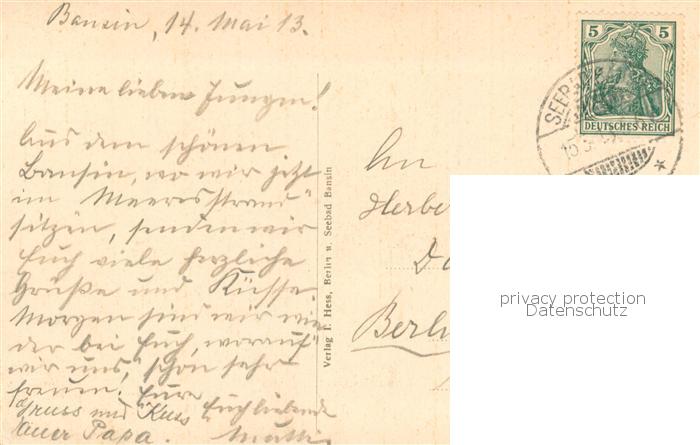 Bansin, 14. Mai 13.
Meine lieben Jungen!
Aus dem schönen
Bansin, wo wir jetzt
im Meeresstrand
sitzen, senden wir
Euch viele herzliche
Grüße und Küsse.
Morgen sind wir wie
der bei Euch, worauf
wir uns schon sehr
freuen. Eure
Euch liebende
Mutti.
Gruss und Kuss
Euer Papa.
Verlag F. Hess, Berlin u. Seebad Bansin
5 5
DEUTSCHES REICH
SEEB
An
Herbe
Berli
privacy protection
Datenschutz